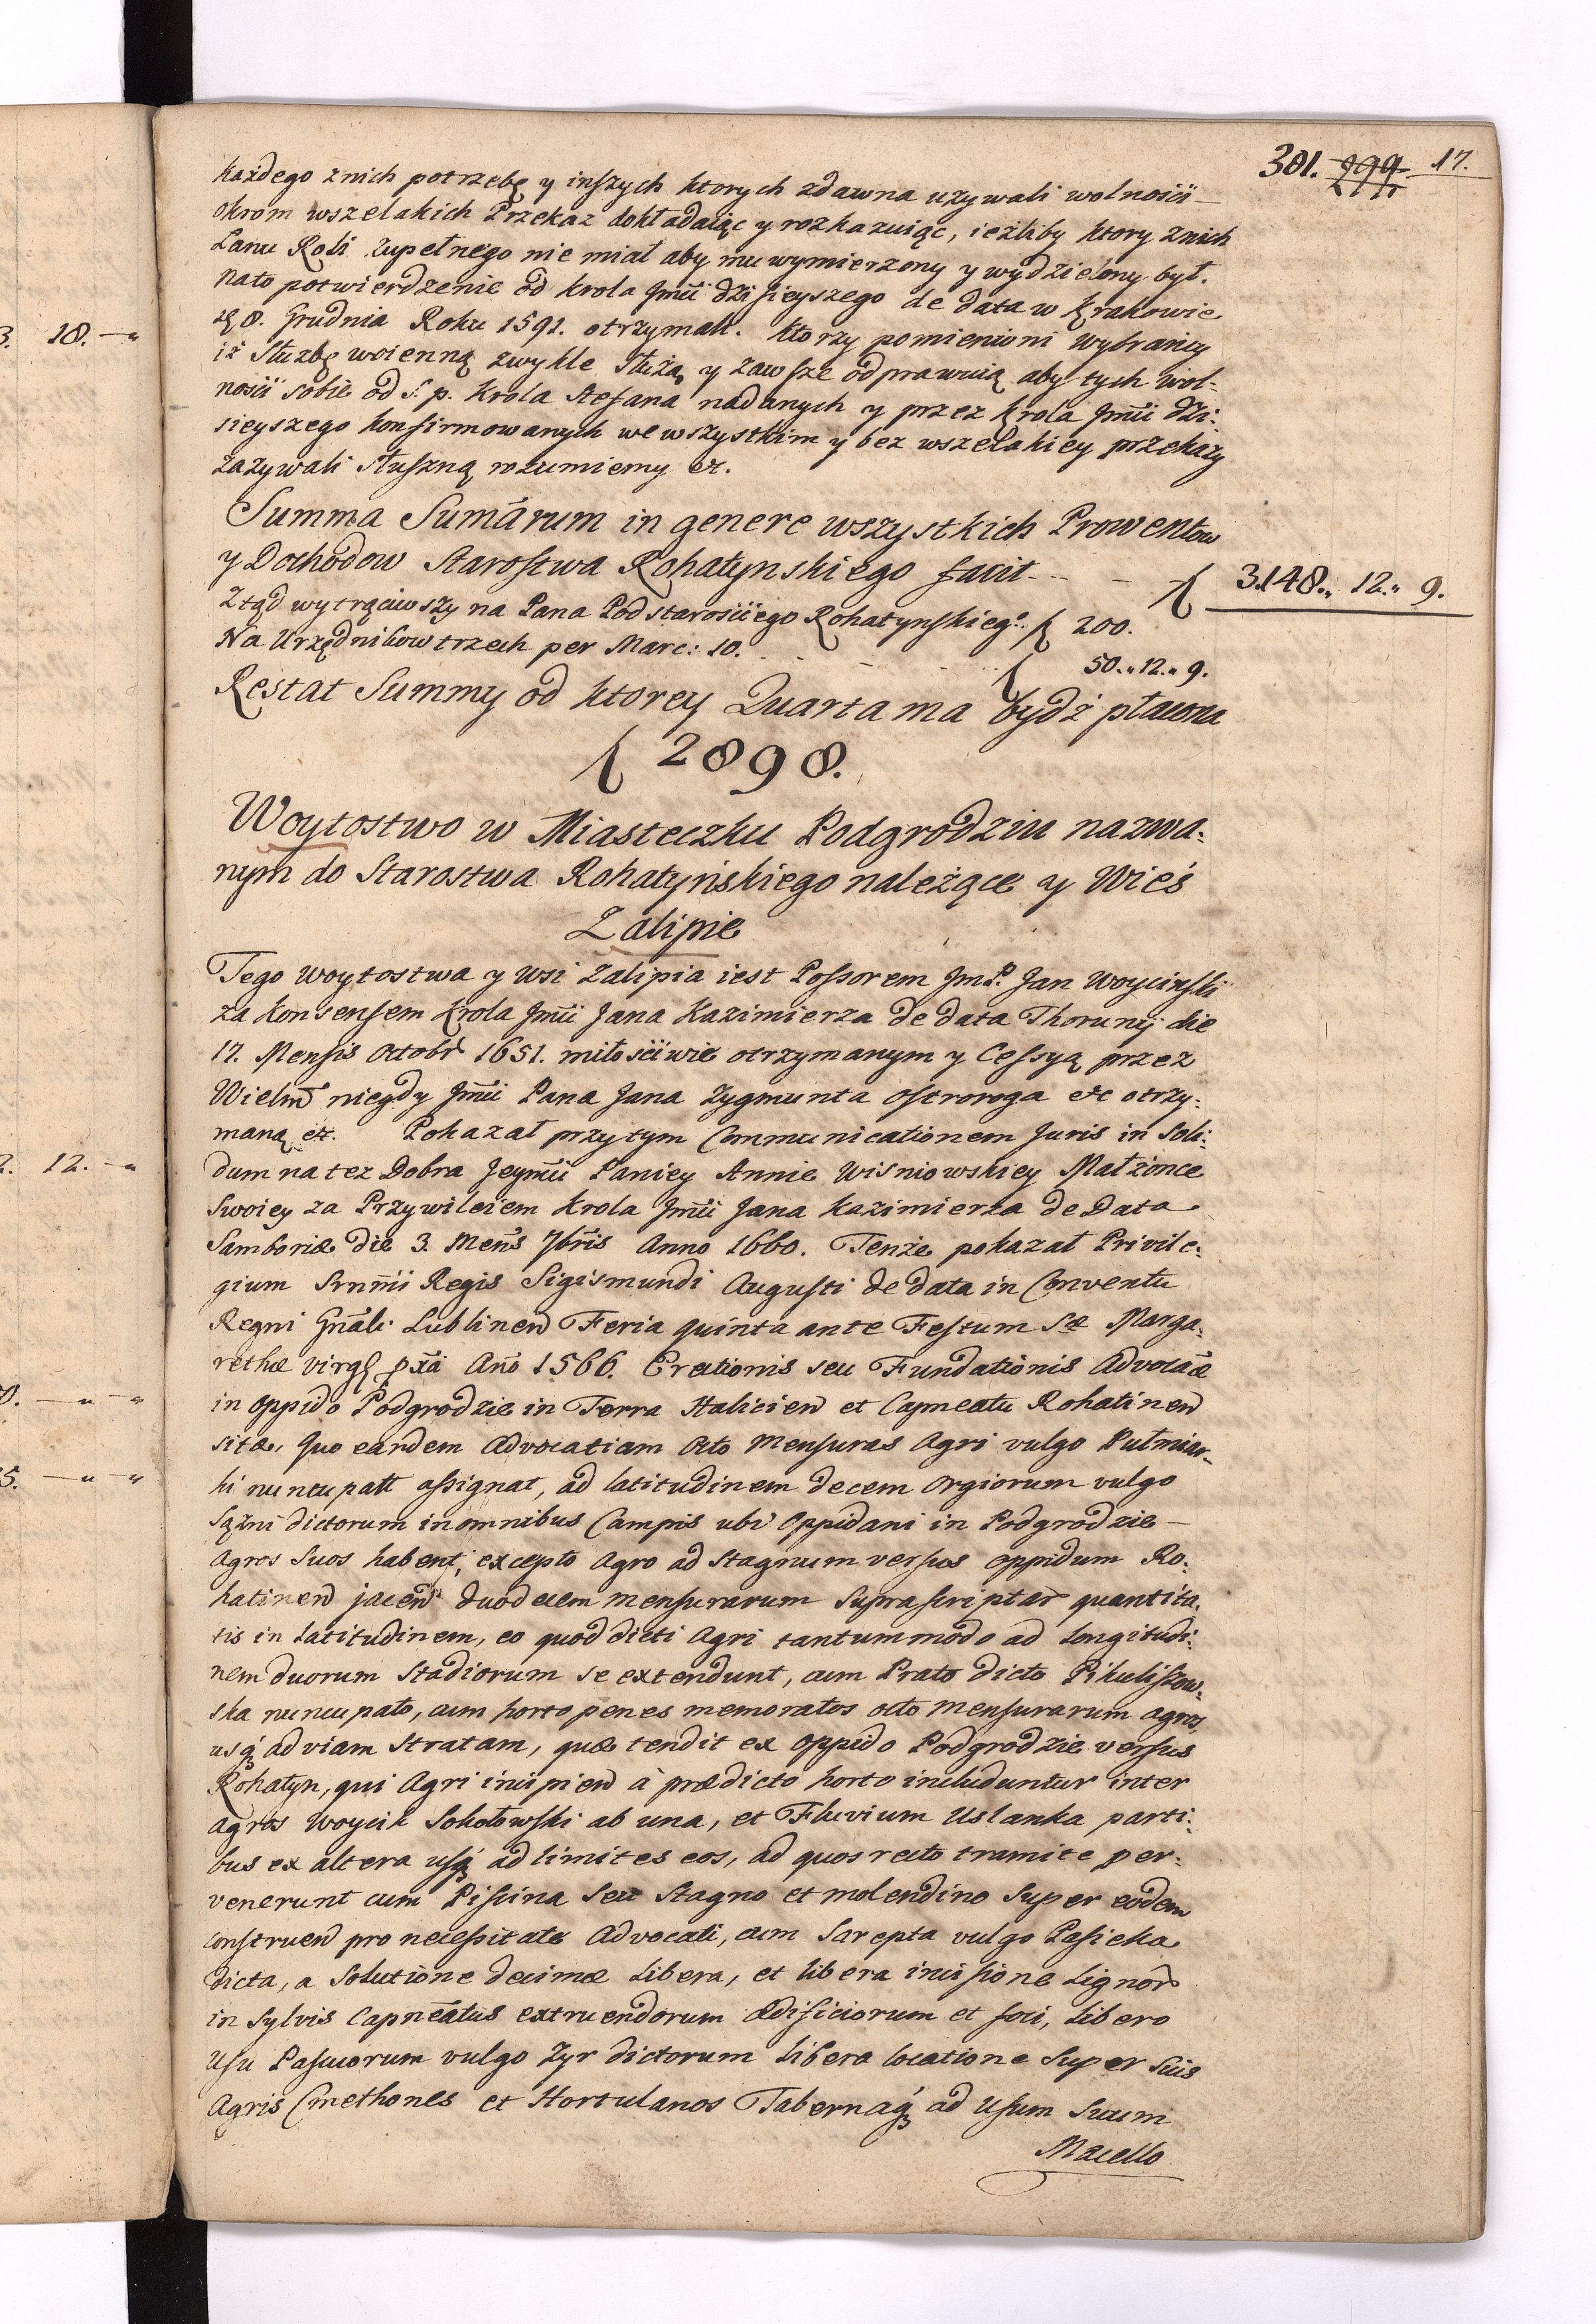 301. 299. 17.
każdego z nich potrzebę y inszych ktorych zdawna używali wolności –
okrom wszelakich Przekaz dokładaiąc y rozkazuiąc, ieżliby ktory z nich
Lanu Roli zupełnego nie miał aby mu wymierzony y wydzielony był.
na to potwierdzenie od krola Jmci dzisieyszego de data w Krakowie
28. Grudnia Roku 1591. otrzymali. Ktorzy pomienioni Wybrańcy
iż Służbę woienną zwykle służą y zawsze odprawuią aby tych wol:
ności sobie od S. p. Krola Stefana nadanych y przez Krola Jm̃ci dzi:
sieyszego konfirmowanych we wszystkim y bez wszelakiey przekazy
zażywali słuszną rozumiemy etc.
Summa Sumārum in genere wszystkich Prowentow
y Dochodow Starostwa Rohatynskiego facit - - - - 3148. „ 12. „ 9.
Ztąd wytrąciwszy na Pana Podstarościego Rohatynskieg.º 200.
Na Urzędnikow trzech per Marc: 10. 50. „ 12. „ 9.
Restat Summy od ktorey Quarta ma bydź płacona
2898.
Woytostwo w Miasteczku Podgrodziu nazwa:
nym do Starostwa Rohatyńskiego należące y Wieś
Zalipie
Tego Woytostwa y Wsi Zalipia iest Possorem JmP. Jan Woyciński
za konsensem Krola Jm̃ci Jana Kazimierza de data Thorunij die
17. Mensis Octobr 1651. miłościwie otrzymanym y Cessyą przez
Wielm̃ niegdy Jm̃ci Pana Jana Zygmunta Ostroroga etc otrzy:
maną etc. Pokazał przytym Communicationem Juris in Soli:
dum na tez Dobra Jeym̃ci Paniey Annie Wisniowskiey Małżonce
Swoiey za Przywileiem Krola Jm̃ci Jana Kazimierza de Data
Samboriæ die 3. Meñs 7br̃is Anno 1660. Tenże pokazał Privile:
gium Srnñii Regis Sigismundi Augusti de data in Conventu
Regni Gñali Lublinen Feria quinta ante Festum Sæ Marga:
rethæ virg̃ pxã Año 1566. Erectionis seu Fundationis Advocãæ
in oppido Podgrodzie in Terra Halicien et Capneatu Rohatinen
sitæ, quo eandem Advocatiam octo Mensuras Agri vulgo Pułmiar-
ki nuncupatt assignat, ad latitudinem decem Orgiorum vulgo
Sążni dictorum in omnibus Campis ubi Oppidani in Podgrodzie –
Agros Suos habent, excepto Agro ad Stagnum versus oppidum Ro:
hatinen jacen duodecem mensurarum Suprascriptar quantita.
tis in Latitudinem, eo quod dicti Agri tantummodo ad Longitudi:
nem duorum Stadiorum se extendunt, cum Prato dicto Pikuliszow:
ska nuncupato, cum horto penes memoratos octo Mensurarum agros
usq́ ad viam Stratam, quæ tendit ex oppido Podgrodzie versus
Rohatyn, qui Agri incipien à prædicto horto includuntur inter
agros Woycik Sokołowski ab una, et Fluvium Uslanka parti:
bus ex altera usq́ ad limites eos, ad quos recto tramite per:
venerunt cum Piscina Seu Stagno et molendino Super eodem
construen pro necessitate Advocati, cum Sarepta vulgo Pasieka
dicta, a Solutione decimæ Libera, et libera incisione Lignor̃
in Sylvis Capneãtus extruendorum ædificiorum et foci, libero
Usu Pascuorum vulgo Zyr dictorum libera locatione Super Suis
Agris Cmethones et Hortulanos Tabernaq́ ad Usum Suum
Macello
3. 18. – „
2. 12. – „
0. – „ – „
5. – „ – „